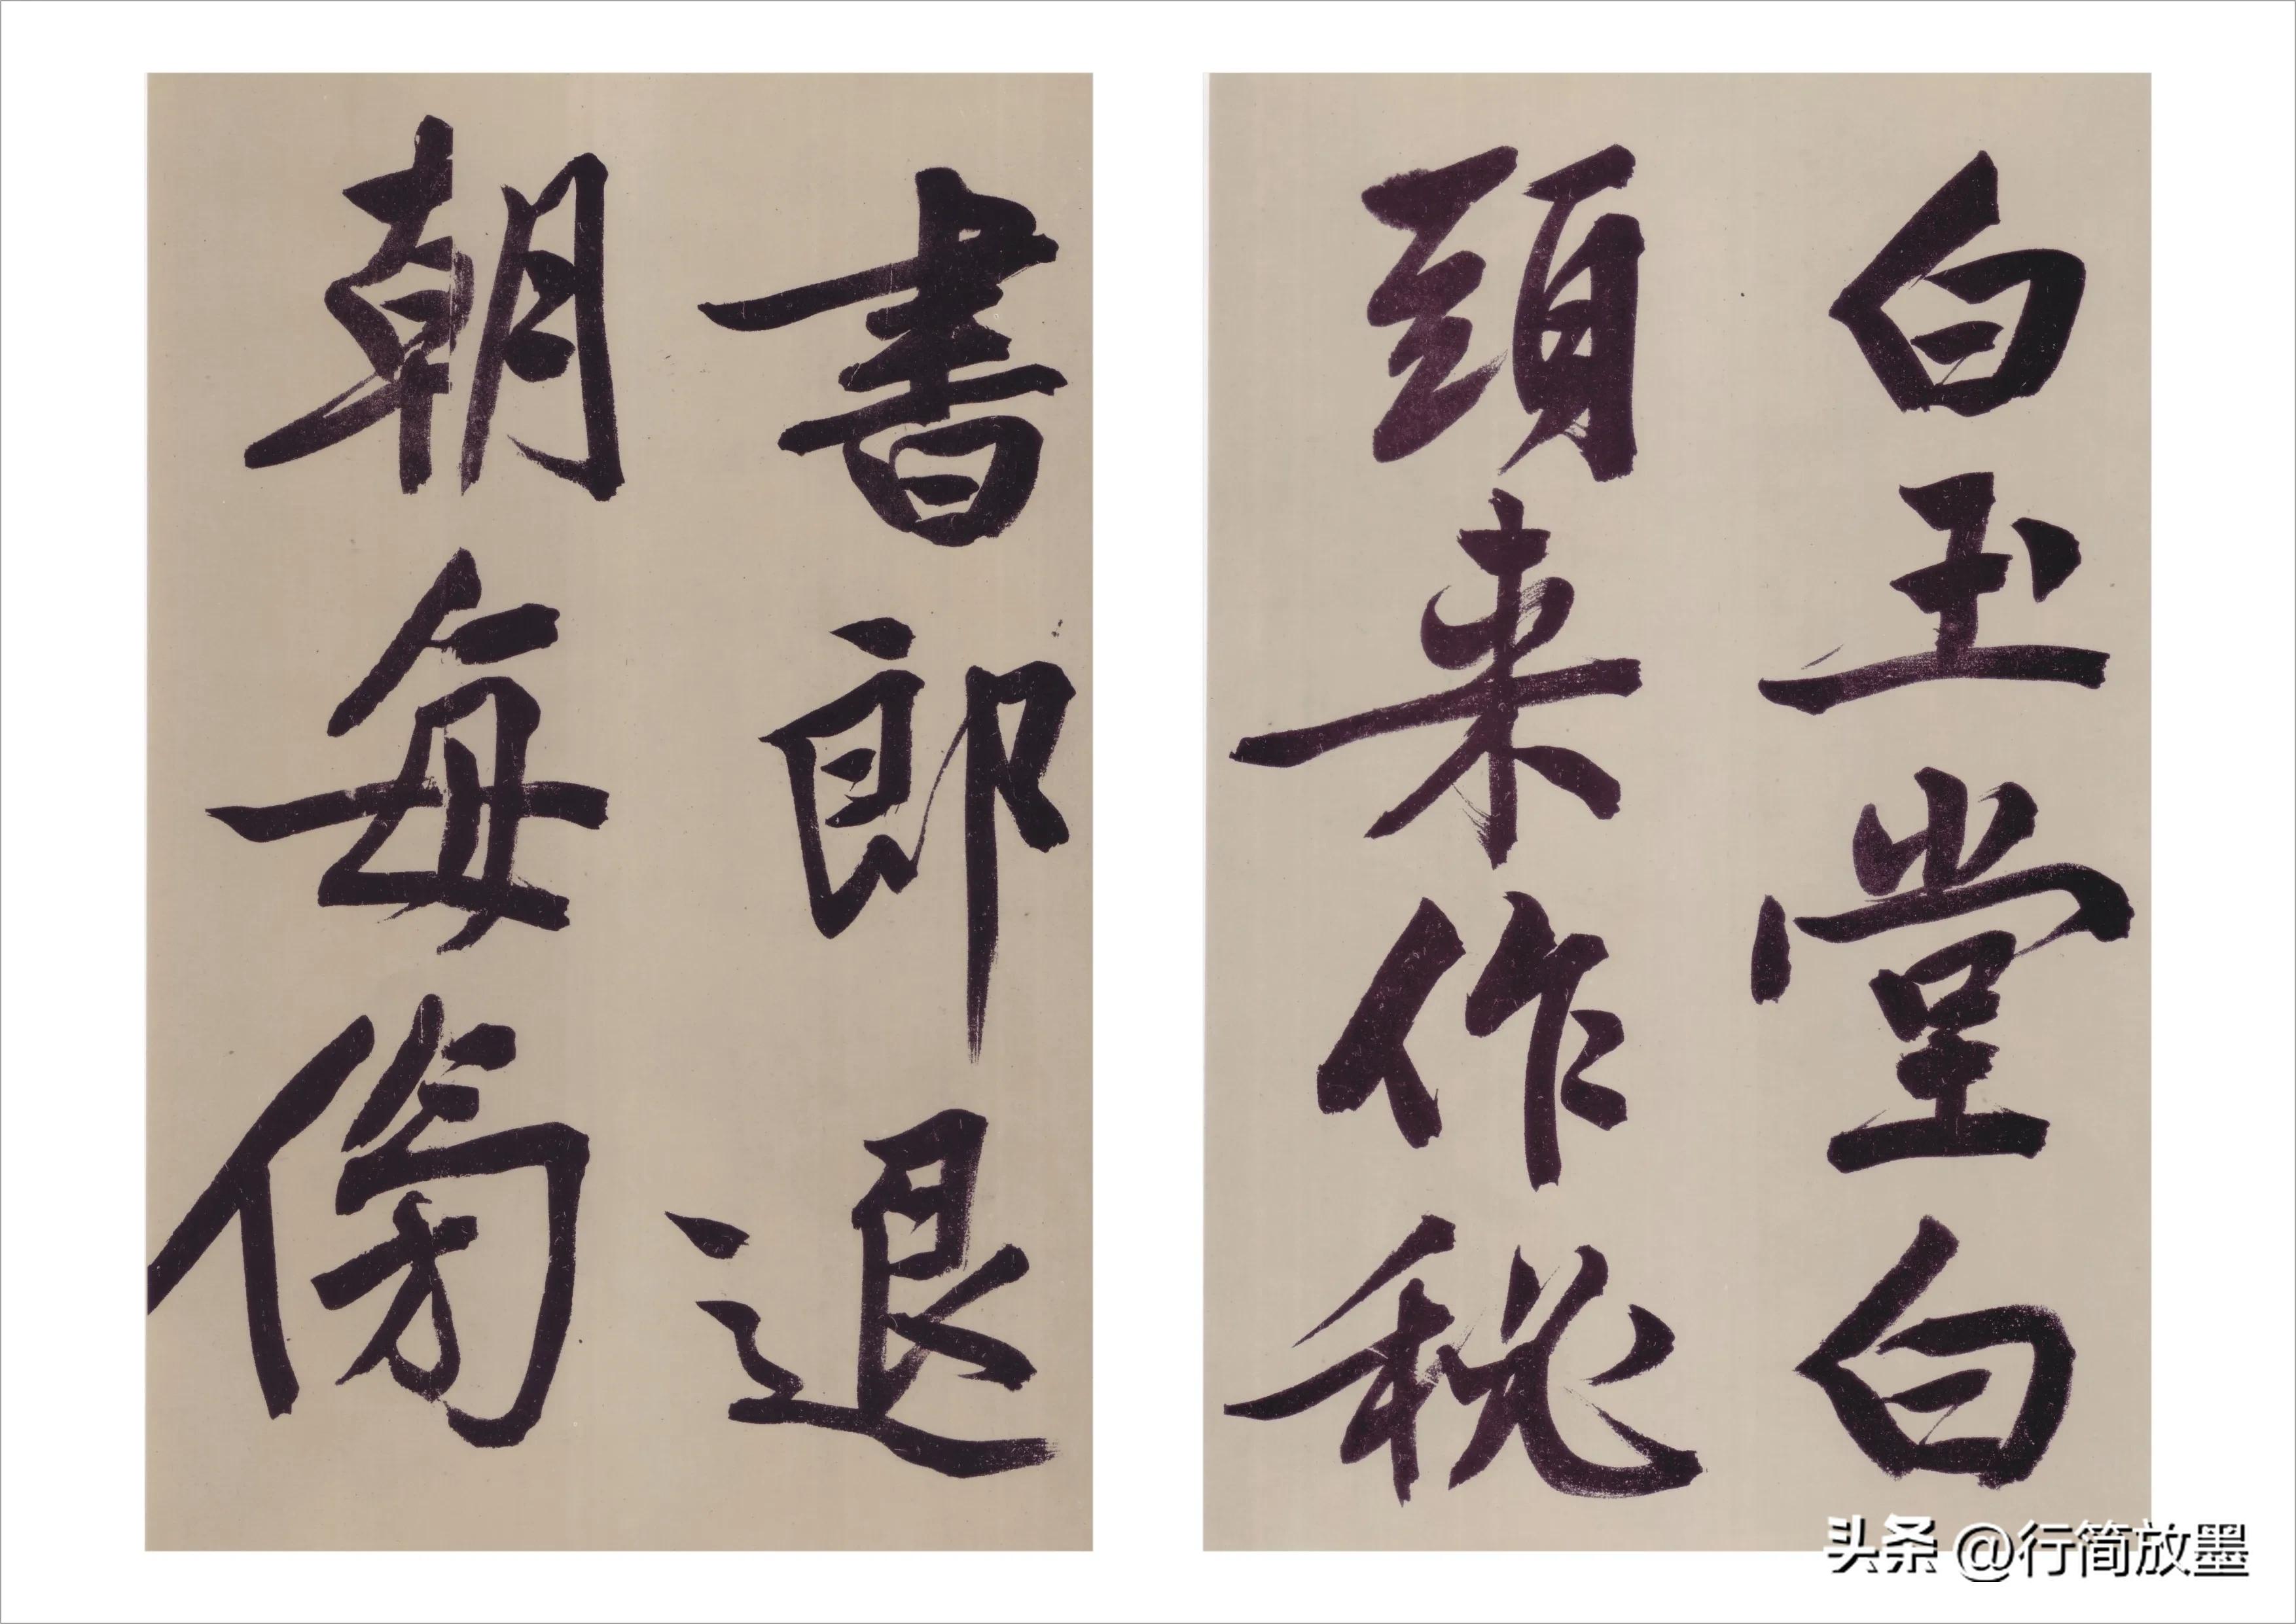 白玉堂白
頭来作秘
書郎退
朝每傍
头条 @行简放墨